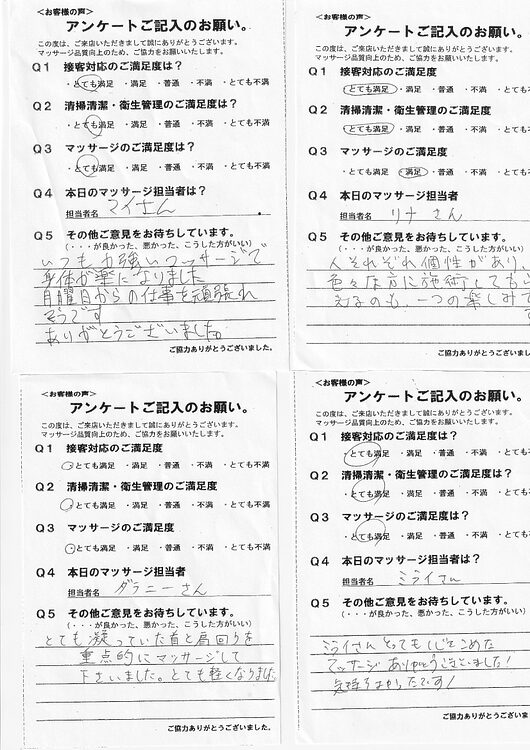 ＜お客様の声＞
アンケートご記入のお願い。
この度は、ご来店いただきまして誠にありがとうございます。
マッサージ品質向上のため、ご協力をお願いいたします。
Q1 接客対応のご満足度は？
・とても満足 ・満足 ・普通 ・不満 ・とても不満
Q2 清掃清潔・衛生管理のご満足度は？
・とても満足 ・満足 ・普通 ・不満 ・とても不満
Q3 マッサージのご満足度は？
・とても満足 ・満足 ・普通 ・不満 ・とても不満
Q4 本日のマッサージ担当者は？
担当者名 マイさん
Q5 その他ご意見をお待ちしています。
（・・・が良かった、悪かった、こうした方がいい）
いつも力強いマッサージで
身体が楽になりました
月曜日からの仕事を頑張れ
そうです
ありがとうございました。
ご協力ありがとうございました。
＜お客様の声＞
アンケートご記入のお願い。
この度は、ご来店いただきまして誠にありがとうございます。
マッサージ品質向上のため、ご協力をお願いいたします。
Q1 接客対応のご満足度
・とても満足 ・満足 ・普通 ・不満 ・とても不
Q2 清掃清潔・衛生管理のご満足度
・とても満足 ・満足 ・普通 ・不満 ・とても不
Q3 マッサージのご満足度
・とても満足 ・満足 ・普通 ・不満 ・とても不
Q4 本日のマッサージ担当者
担当者名 リナさん
Q5 その他ご意見をお待ちしています。
（・・・が良かった、悪かった、こうした方がいい）
人それぞれ個性があり、
色々な方に施術してもら
えるのも、一つの楽しみで
ご協力ありがとうございました
＜お客様の声＞
アンケートご記入のお願い。
この度は、ご来店いただきまして誠にありがとうございます。
マッサージ品質向上のため、ご協力をお願いいたします。
Q1 接客対応のご満足度
・とても満足 ・満足 ・普通 ・不満 ・とても不満
Q2 清掃清潔・衛生管理のご満足度
・とても満足 ・満足 ・普通 ・不満 ・とても不満
Q3 マッサージのご満足度
・とても満足 ・満足 ・普通 ・不満 ・とても不満
Q4 本日のマッサージ担当者
担当者名 ダラニーさん
Q5 その他ご意見をお待ちしています。
（・・・が良かった、悪かった、こうした方がいい）
とても凝っていた首と肩回りを
重点的にマッサージして
下さいました。とても軽くなりました
ご協力ありがとうございました。
＜お客様の声＞
アンケートご記入のお願い。
この度は、ご来店いただきまして誠にありがとうございます。
マッサージ品質向上のため、ご協力をお願いいたします。
Q1 接客対応のご満足度は？
・とても満足 ・満足 ・普通 ・不満 ・とても不満
Q2 清掃清潔・衛生管理のご満足度は？
・とても満足 ・満足 ・普通 ・不満 ・とても不満
Q3 マッサージのご満足度は？
・とても満足 ・満足 ・普通 ・不満 ・とても不満
Q4 本日のマッサージ担当者は？
担当者名 ミライさん
Q5 その他ご意見をお待ちしています。
（・・・が良かった、悪かった、こうした方がいい）
ミライさん とっても心をこめた
マッサージ ありがとうございました！
気持ちよかったです！
ご協力ありがとうございま